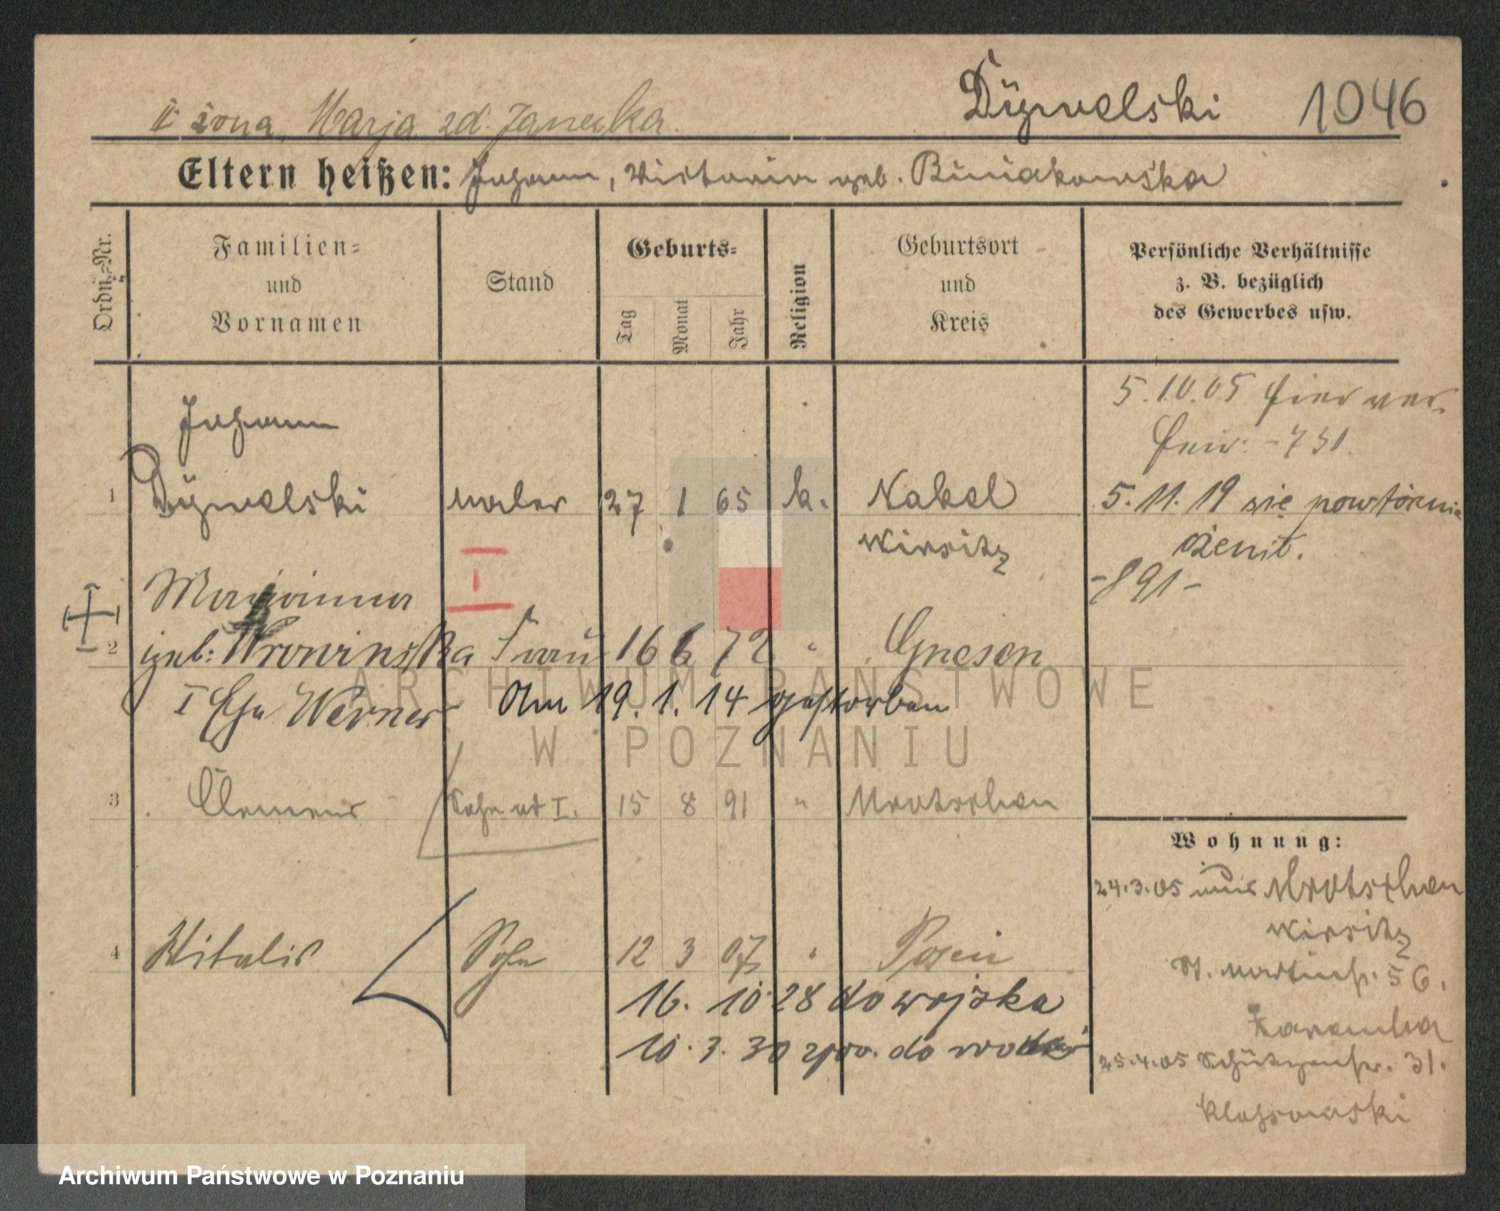 II żona, Marja zd. Janecka.
Dÿwelski 1046
Eltern heißen: Johann, Victoria geb. Biniakowska
Ordn.-Nr.
Familien-
und
Vornamen
Stand
Geburts-
Tag
Monat
Jahr
Religion
Geburtsort
und
Kreis
Persönliche Verhältnisse
z. B. bezüglich
des Gewerbes usw.
Johann
1 Dÿwelski maler 27 1 65 k. Nakel
Wirsitz
5.10.05 hier
731.
5.11.19 się powtórnie
ożenił.
-891-
I
Marianna
2 geb: Frau 16 6 72 " Gnesen
I Ehe Werner Am 19.1.14 gestorben
3 Clemens Sohn I. 15 8 91 " Mrotschen
4 Witalis Sohn 12 3 07 " Posen
16. 10 28 do wojska
10. 3. 30 zpow. do
Wohnung:
24.3.05 aus Mrotschen
Wirsitz
St. Martinstr. 56.
Zaremba
25.4.05 Schützenstr. 31.
ARCHIWUM PAŃSTWOWE
W POZNANIU
Archiwum Państwowe w Poznaniu